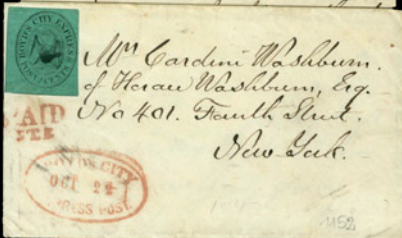 BOYD'S CITY EXPRESS
Mrs Washburn.
of Horace Washburn, Esq.
No 401. Fourth Street.
New York.
PAID
CITY
OCT 24
EXPRESS POST
1152